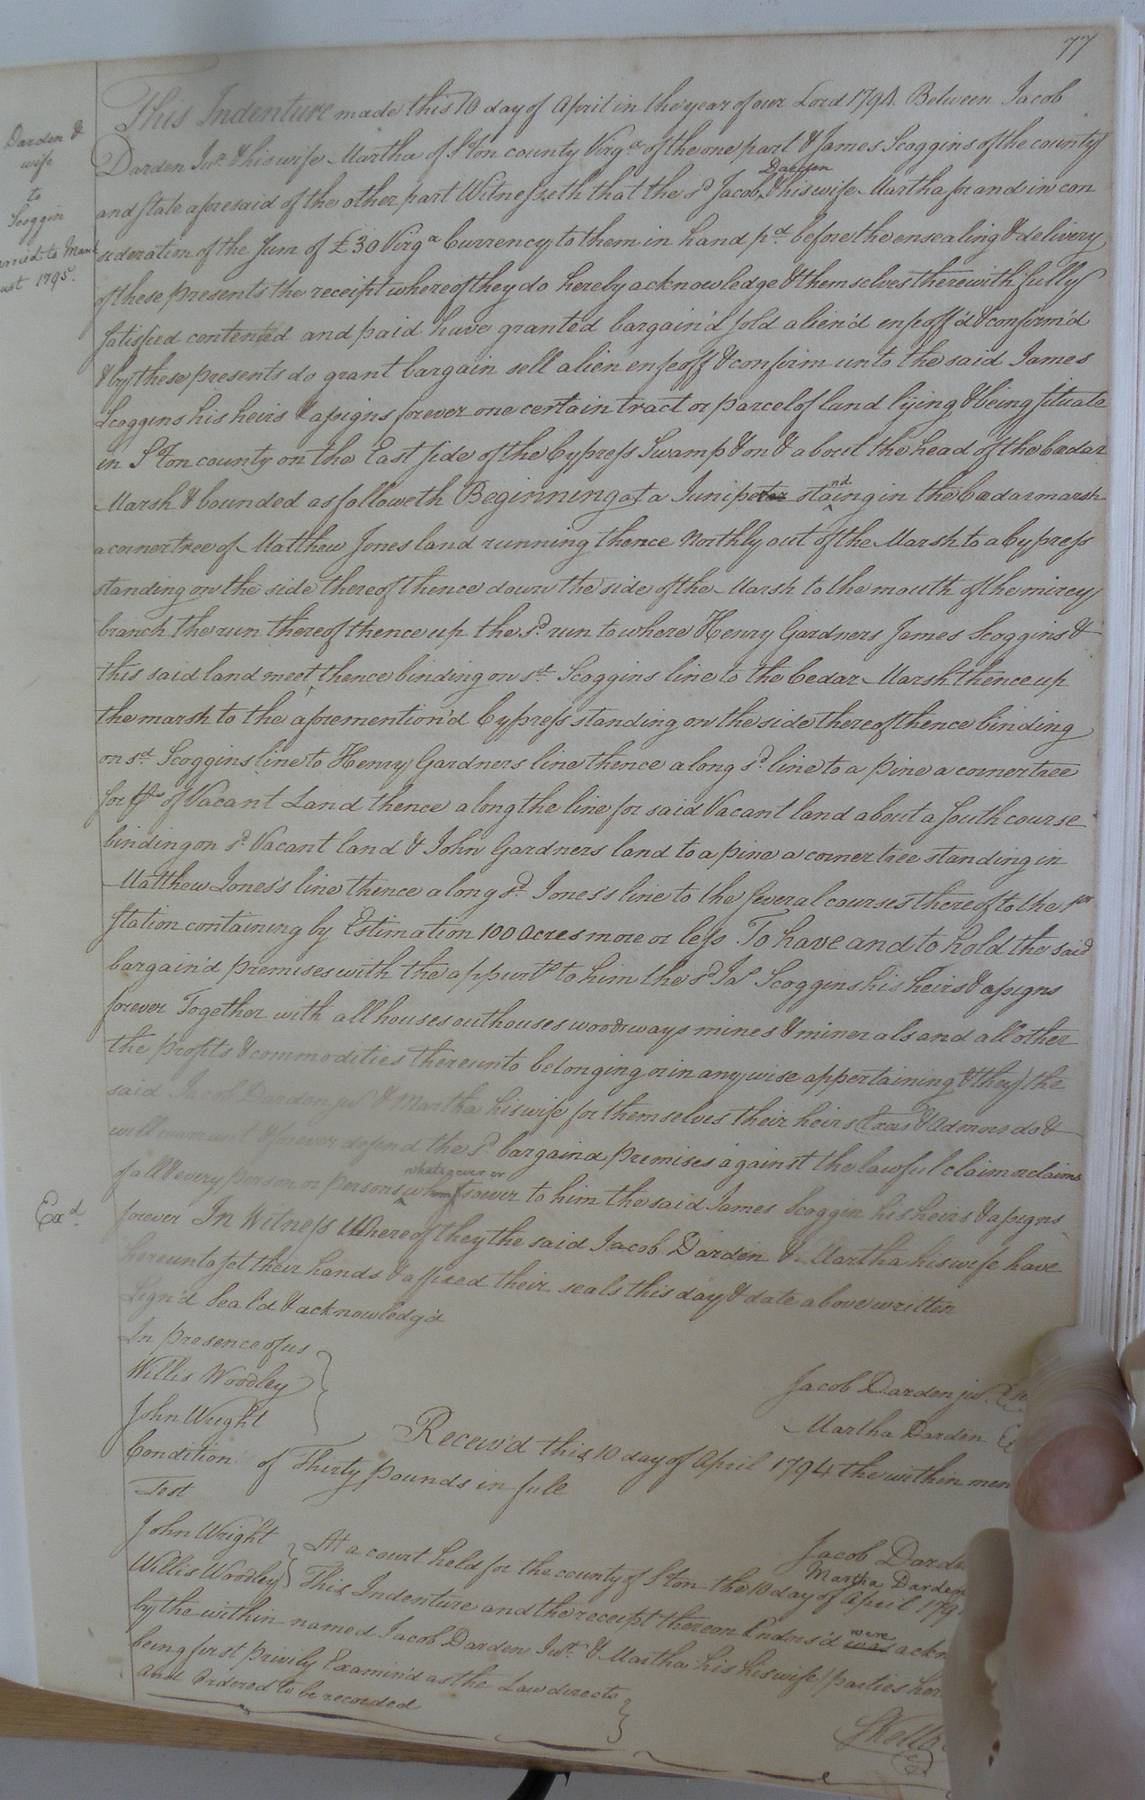 77
Darden &
wife
to
Scoggin
1795
This Indenture made this 10 day of April in the year of our Lord 1794 Between Jacob
Darden Junr. & his wife Martha of S°ton county Virga. of the one part & James Scoggins of the county
Darden
and state aforesaid of the other part Witnesseth that the sd. Jacob & his wife Martha for and in con
sideration of the sum of £30 Virga Currency to them in hand pd. before the ensealing & delivery
of these presents the receipt whereof they do hereby acknowledge & themselves therewith fully
satisfied contented and paid have granted bargain'd sold alien'd enfeoff'd & confirm'd
& by these presents do grant bargain sell alien enfeoff & confirm unto the said James
Scoggins his heirs & assigns forever one certain tract or parcel of land lying & being situate
in S°ton county on the East side of the Cypress Swamp & on & about the head of the Ceadar
Marsh & bounded as followeth Beginning at a Juniper standing in the Ceadar marsh
a corner tree of Matthew Jones land running thence Northly out of the Marsh to a Cypress
standing on the side thereof thence down the side of the Marsh to the mouth of the mirey
branch the run thereof thence up the sd. run to where Henry Gardners James Scoggins &
this said land meet thence binding on sd. Scoggins line to the Cedar Marsh thence up
the marsh to the aforemention'd Cypress standing on the side thereof thence binding
on sd. Scoggins line to Henry Gardners line thence along sd. line to a pine a corner tree
for of Vacant Land thence along the line for said Vacant land about a South course
binding on sd. Vacant land & John Gardners land to a pine a corner tree standing in
Matthew Jones's line thence along sd. Jones's line to the several courses thereof to the
station containing by Estimation 100 acres more or less To have and to hold the said
bargain'd premises with the appurts. to him the sd. Jas. Scoggins his heirs & assigns
forever Together with all houses outhouses woods ways mines & minerals and all other
the profits & commodities thereunto belonging or in any wise appertaining & they the
said Jacob Darden jur. & Martha his wife for themselves their heirs Exors & Admors do &
will warrant & forever defend the sd. bargaind premises against the lawful claim or claims
whatsoever or
of all & every person or persons whomsoever to him the said James Scoggin his heirs & assigns
Exd.
forever In Witness Whereof they the said Jacob Darden & Martha his wife have
hereunto set their hands & affixed their seals this day & date above written
Sign'd Seal'd & acknowledg'd
In presence of us
Willis Woodley
John Wright
Jacob Darden jur.
Martha Darden
Receiv'd this 10 day of April 1794 the within men
Condition of Thirty pounds in full
Test
John Wright
Willis Woodley
Jacob Darde
Martha Darden
At a court held for the county of S°ton the 10 day of April 179
This Indenture and the receipt thereon Endors'd were ackn
by the within named Jacob Darden Junr. & Martha his his wife parties her
being first privily Examin'd as the Law directs
and Ordered to be recorded